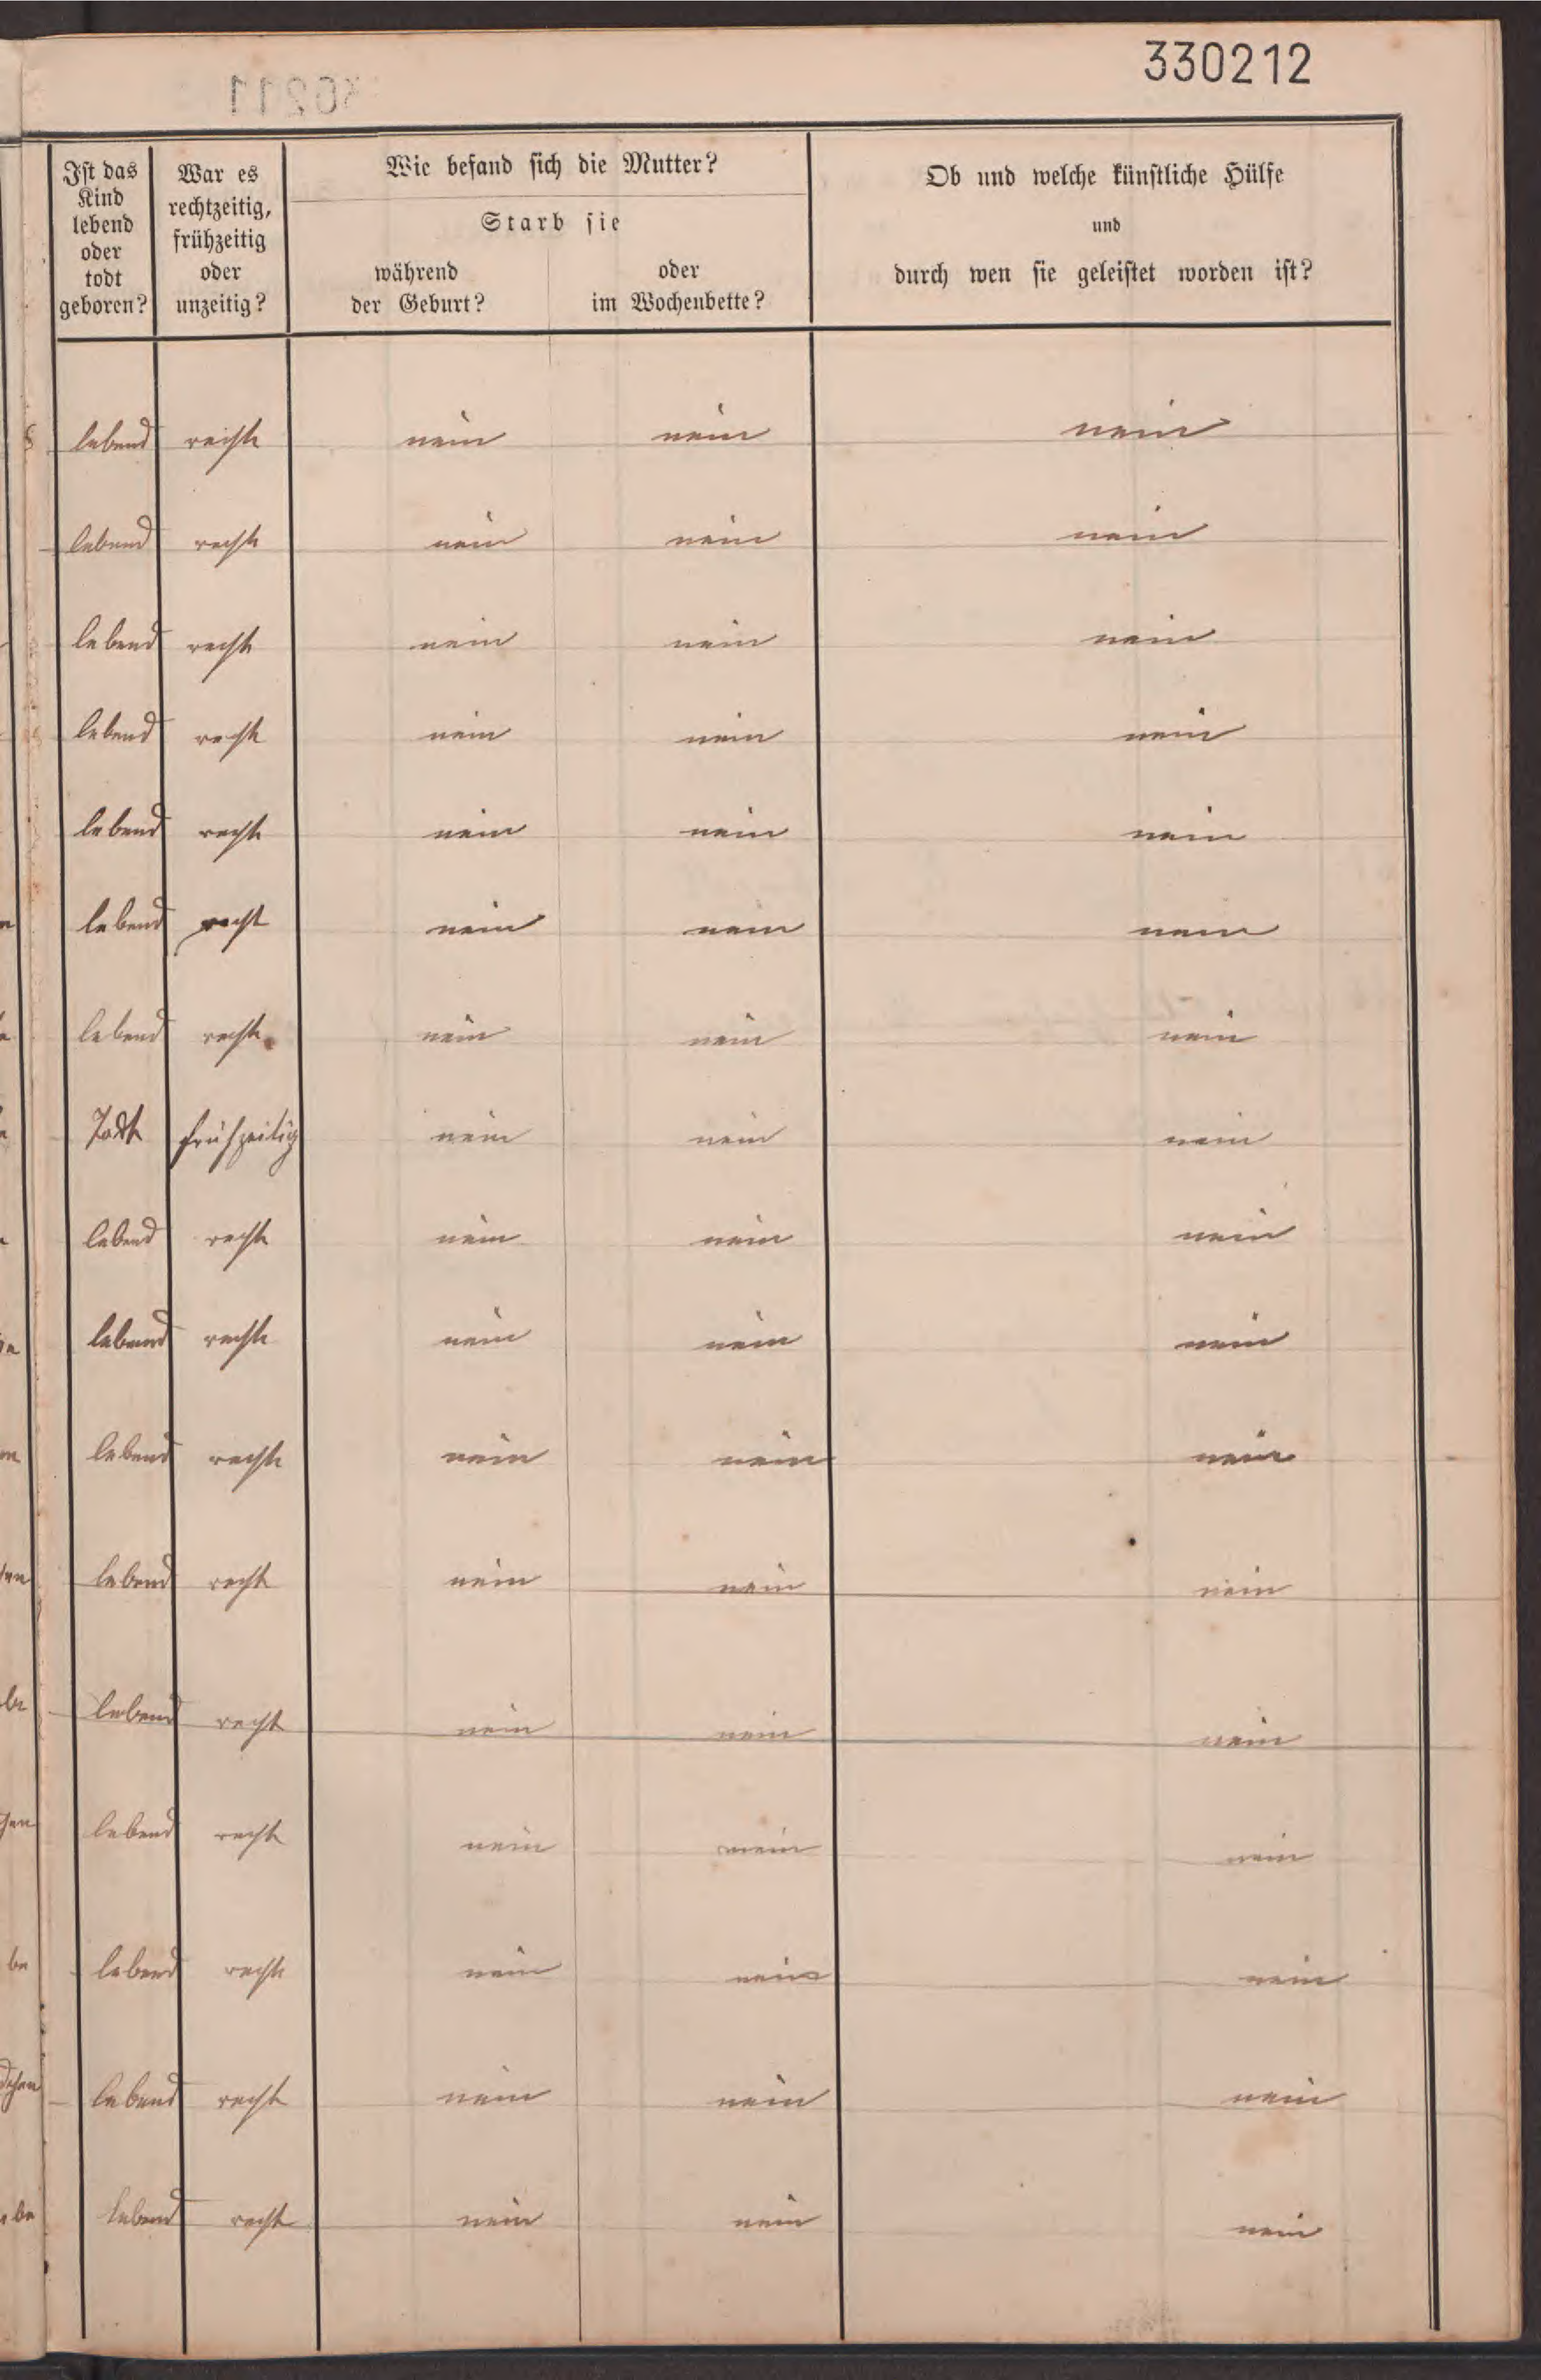 330212
Ist das Kind lebend oder todt geboren?
War es rechtzeitig, frühzeitig oder unzeitig?
Wie befand sich die Mutter?
Starb sie
während der Geburt?
oder im Wochenbette?
Ob und welche künstliche Hülfe
und
durch wen sie geleistet worden ist?
lebend recht nein nein nein
lebend recht nein nein nein
lebend recht nein nein nein
lebend recht nein nein nein
lebend recht nein nein nein
lebend recht nein nein nein
lebend recht nein nein nein
Todt frühzeitig nein nein nein
lebend recht nein nein nein
lebend recht nein nein nein
lebend recht nein nein nein
lebend recht nein nein nein
lebend recht nein nein nein
lebend recht nein nein nein
lebend recht nein nein nein
lebend recht nein nein nein
lebend recht nein nein nein